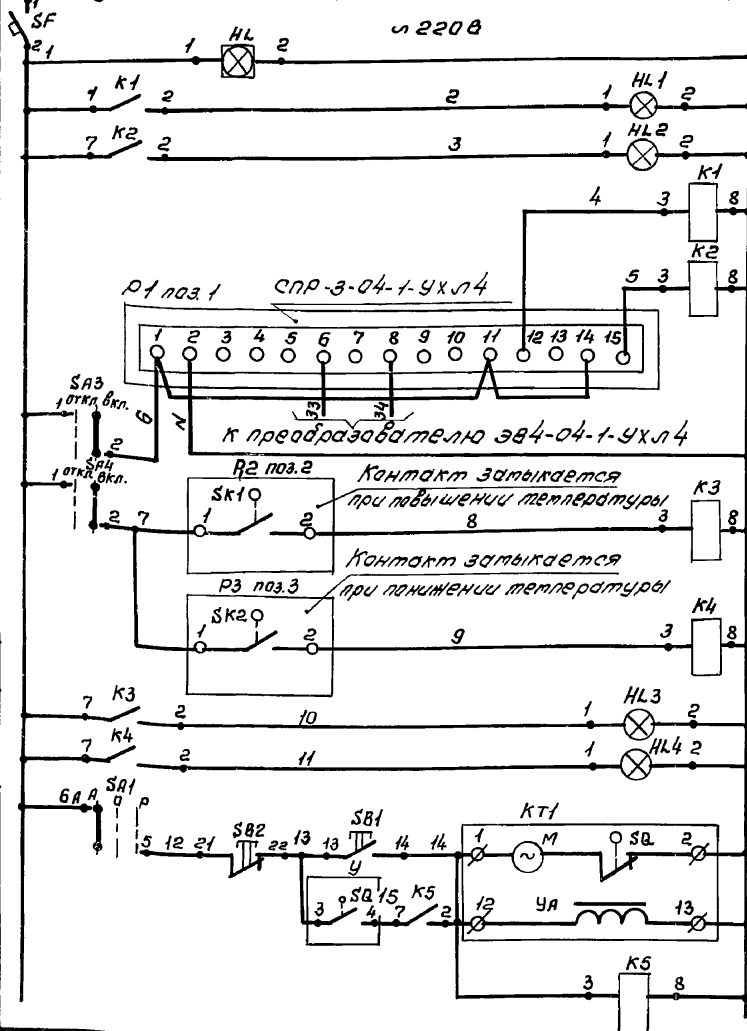 1
SF
2
1 1 HL 2
~220В
1 K1 2 2 1 HL1 2
7 K2 2 3 1 HL2 2
4 3 K1 8
5 3 K2 8
P1 поз.1 СПР-3-04-1-УХЛ4
1 2 3 4 5 6 7 8 9 10 11 12 13 14 15
6 N 33 34
к преобразавателю ЭВ4-04-1-УХЛ4
SA3
1 откл. вкл.
2
SA4
1 откл. вкл.
2 7
R2 поз.2
Контакт замыкается
при повышении температуры
1 SK1 2 8 3 K3 8
P3 поз.3
Контакт замыкается
при понижении температуры
1 SK2 2 9 3 K4 8
7 K3 2 10 1 HL3 2
7 K4 2 11 1 HL4 2
SA1
6А А О Р
5 12 21 SB2 22 13 13 SB1 14 14
KT1
1 M SQ 2
У
3 SQ 4 15 7 K5 2
12 УА 13
3 K5 8